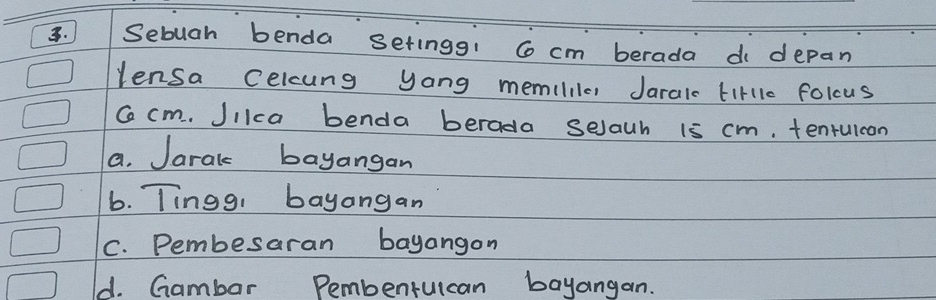 3. Sebuah benda setinggi 6 cm berada di depan
lensa cekung yang memiliki Jarak titik fokus
6 cm. Jika benda berada sejauh 15 cm, tentukan
a. Jarak bayangan
b. Tinggi bayangan
c. Pembesaran bayangan
d. Gambar Pembentukan bayangan.